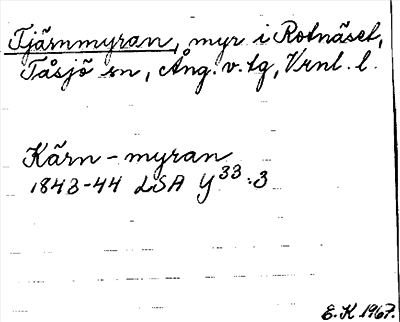 Tjärnmyran, myr i Rotnäset,
Tåsjö sn, Ång. v. tg, Vrnl. l.
Kärn-myran
1843-44 LSA Y 33:3
E. K 1967.